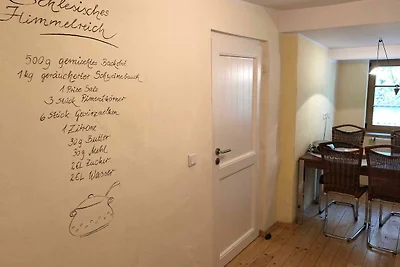 Schlesisches
Himmelreich
500g gemischtes Backobst
1kg geräucherter Schweinebauch
1 Prise Salz
3 Stück Pimentkörner
6 Stück Gewürznelken
1 Zitrone
30g Butter
30g Mehl
2 EL Zucker
2 EL Wasser